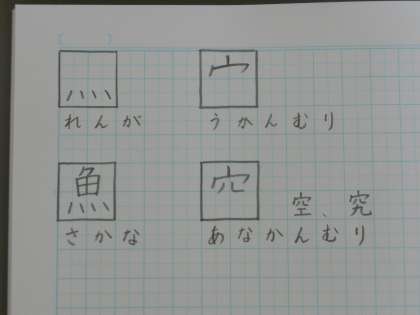 灬 宀
れんが うかんむり
魚 穴 空、究
さかな あなかんむり